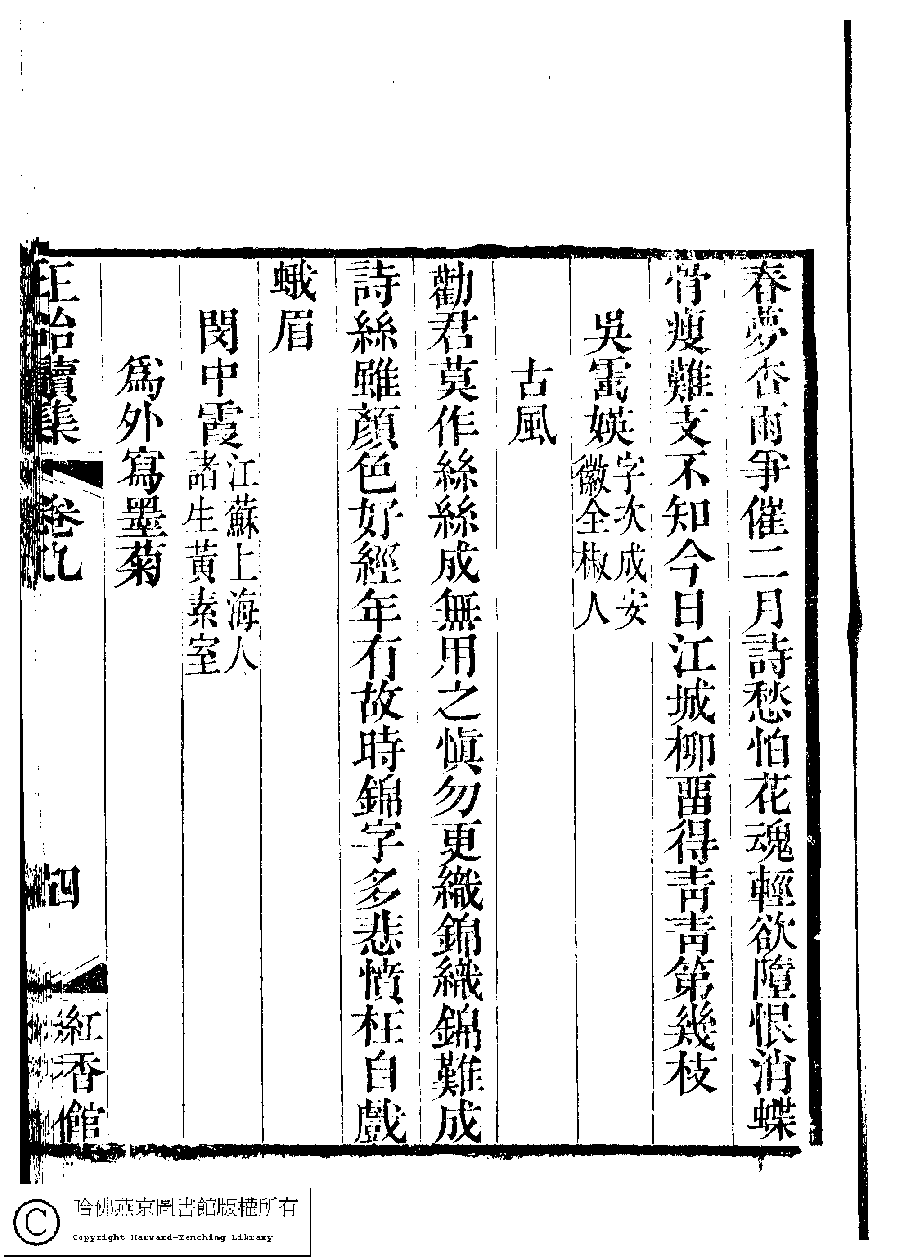 春夢杏雨爭催二月詩愁怕花魂輕欲墮恨消蝶
骨瘦難支不知今日江城柳畱得靑靑第幾枝
吳媖字次成安
徽全椒人
古風
勸君莫作絲絲成無用之愼勿更織錦織錦難成
詩絲雖顏色好經年有故時錦字多悲憤枉自戲
蛾眉
閔中霞江蘇上海人
諸生黃素室
爲外寫墨菊
正始續集 卷九 四 紅香館
哈佛燕京圖書館版權所有
Copyright Harvard-Yenching Library